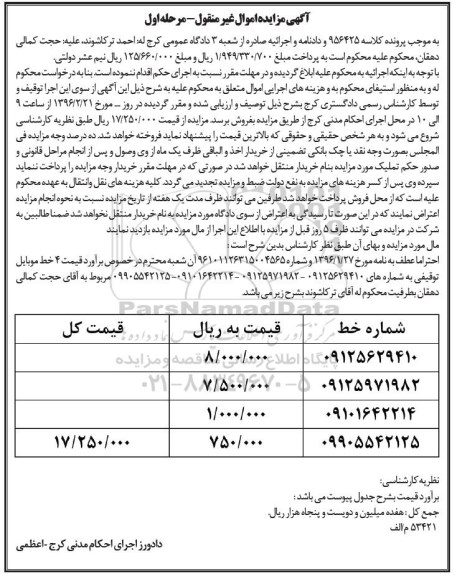 آگهی مزایده اموال غیر منقول – مرحله اول
به موجب پرونده کلاسه ۹۵۶۴۲۵ و دادنامه و اجرائیه صادره از شعبه ۳ دادگاه عمومی کرج له: احمد ترکاشوند، علیه: حجت کمالی
دهقان، محکوم علیه محکوم است به پرداخت مبلغ ۱/۹۴۹/۳۳۰/۷۰۰ ریال و مبلغ ۱۲۵/۶۶۰/۰۰۰ ریال نیم عشر دولتی.
با توجه به اینکه اجرائیه به محکوم علیه ابلاغ گردیده و در مهلت مقرر نسبت به اجرای حکم اقدام ننموده است. بنا به درخواست محکوم
له و به منظور استیفای محکوم به و هزینه های اجرایی اموال متعلق به محکوم علیه به شرح ذیل این آگهی از سوی این اجرا توقیف و
توسط کارشناس رسمی دادگستری کرج بشرح ذیل توصیف و ارزیابی شده و مقرر گردیده در روز ـ مورخ ۱۳۹۶/۲/۲۱ از ساعت ۹
الی ۱۰ در محل اجرای احکام مدنی کرج از طریق مزایده بفروش برسد. مزایده از قیمت ۱۷/۲۵۰/۰۰۰ ریال طبق نظریه کارشناسی
شروع می شود و به هر شخص حقیقی و حقوقی که بالاترین قیمت را پیشنهاد نماید فروخته خواهد شد. ده درصد وجه مزایده فی
المجلس بصورت وجه نقد یا چک بانکی تضمینی از خریدار اخذ و الباقی ظرف یک ماه از وی وصول و پس از انجام مراحل قانونی و
صدور حکم تملیک مورد مزایده بنام خریدار منتقل خواهد شد در صورتی که در مهلت مقرر خریدار وجه مزایده را پرداخت ننماید
سپرده وی پس از کسر هزینه های مزایده به نفع دولت ضبط و مزایده تجدید می گردد. کلیه هزینه های نقل وانتقال به عهده محکوم
علیه است که از محل فروش پرداخت خواهد شد طرفین می توانند ظرف مدت یک هفته از تاریخ مزایده نسبت به نحوه انجام مزایده
اعتراض نمایند که در این صورت تا رسیدگی به اعتراض از سوی دادگاه مورد مزایده به نام خریدار منتقل نخواهد شد ضمنا طالبین به
شرکت در مزایده می توانند ظرف ۵ روز قبل از مزایده با اطلاع این اجرا از مال مورد مزایده بازدید نمایند
مال مورد مزایده و بهای آن طبق نظر کارشناس بدین شرح است:
احتراما عطف به نامه مورخ ۱۳۹۶/۱/۲۷ و شماره ۹۶۱۰۱۱۲۶۳۱۵۰۰۴۵۶۵ آن شعبه محترم در خصوص برآورد قیمت ۴ خط موبایل
توقیفی به شماره های ۰۹۱۲۵۶۲۹۴۱۰ - ۰۹۱۲۵۹۷۱۹۸۲ - ۰۹۱۰۱۶۴۲۲۱۴ - ۰۹۹۰۵۵۴۲۱۲۵ مربوط به آقای حجت کمالی
دهقان بطرفیت محکوم له آقای ترکاشوند بشرح زیر می باشد.
شماره خط قیمت به ریال قیمت کل
۰۹۱۲۵۶۲۹۴۱۰ ۸/۰۰۰/۰۰۰
۰۹۱۲۵۹۷۱۹۸۲ ۷/۵۰۰/۰۰۰
۰۹۱۰۱۶۴۲۲۱۴ ۱/۰۰۰/۰۰۰
۰۹۹۰۵۵۴۲۱۲۵ ۷۵۰/۰۰۰ ۱۷/۲۵۰/۰۰۰
نظریه کارشناسی:
برآورد قیمت بشرح جدول پیوست می باشد:
جمع کل: هفده میلیون و دویست و پنجاه هزار ریال.
۵۳۴۲۱ م/الف
دادورز اجرای احکام مدنی کرج - اعظمی
ParsNamadData
پایگاه اطلاع رسانی مناقصه و مزایده
۰۲۱-۸۸۳۴۹۶۷۰-۵